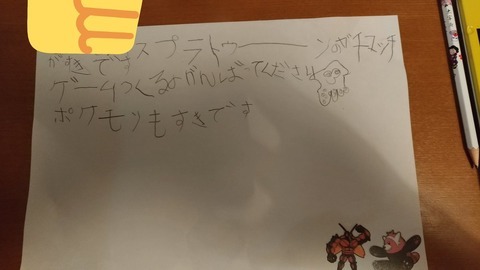 スプラトゥーーンのガチマッチ
がすきです
ゲームつくるのがんばってください
ポケモンもすきです